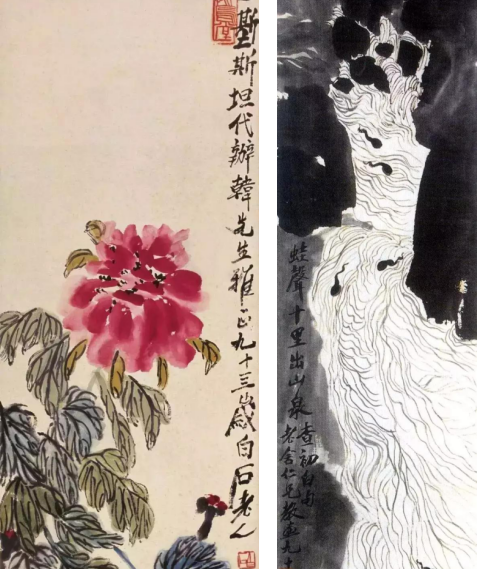 斯坦代辦韓先生雅正九十三歲白石老人
蛙聲十里出山泉
查初白句
老舍仁兄教正九十